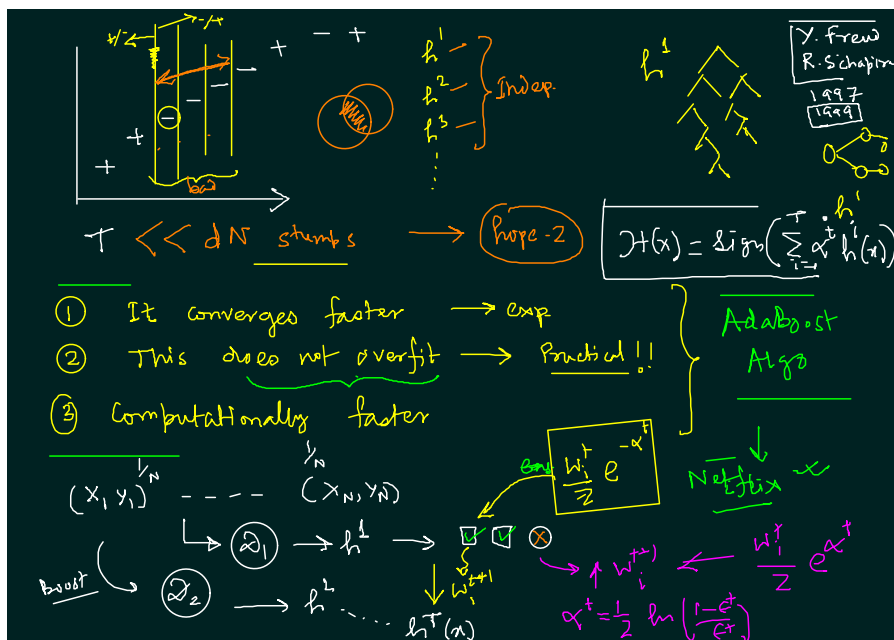 +/-
-/+
+ - +
h¹
h²
h³
Indep.
h¹
Y. Freu
R. Schapir
1997
1999
bad
T << dN stumbs → hope-2
H(x) = sign(∑ᵢ₌₁ᵀ αᵗ hⁱ(x))
h'
① It converges faster → exp
② This does not overfit → Practical !!
③ Computationally faster
AdaBoost
Algo
Netflix
(X₁ Y₁)^1/N ---- (X_N, Y_N)^1/N
Wᵢᵗ/Z e^-αᵗ
D₁ → h¹ →
Boost
D₂ → h²
Wᵢᵗ⁺¹
hᵀ(x)
↑ Wᵢᵗ⁺¹ ← Wᵢᵗ/Z e^αᵗ
αᵗ = 1/2 ln((1-Єᵗ)/Єᵗ)